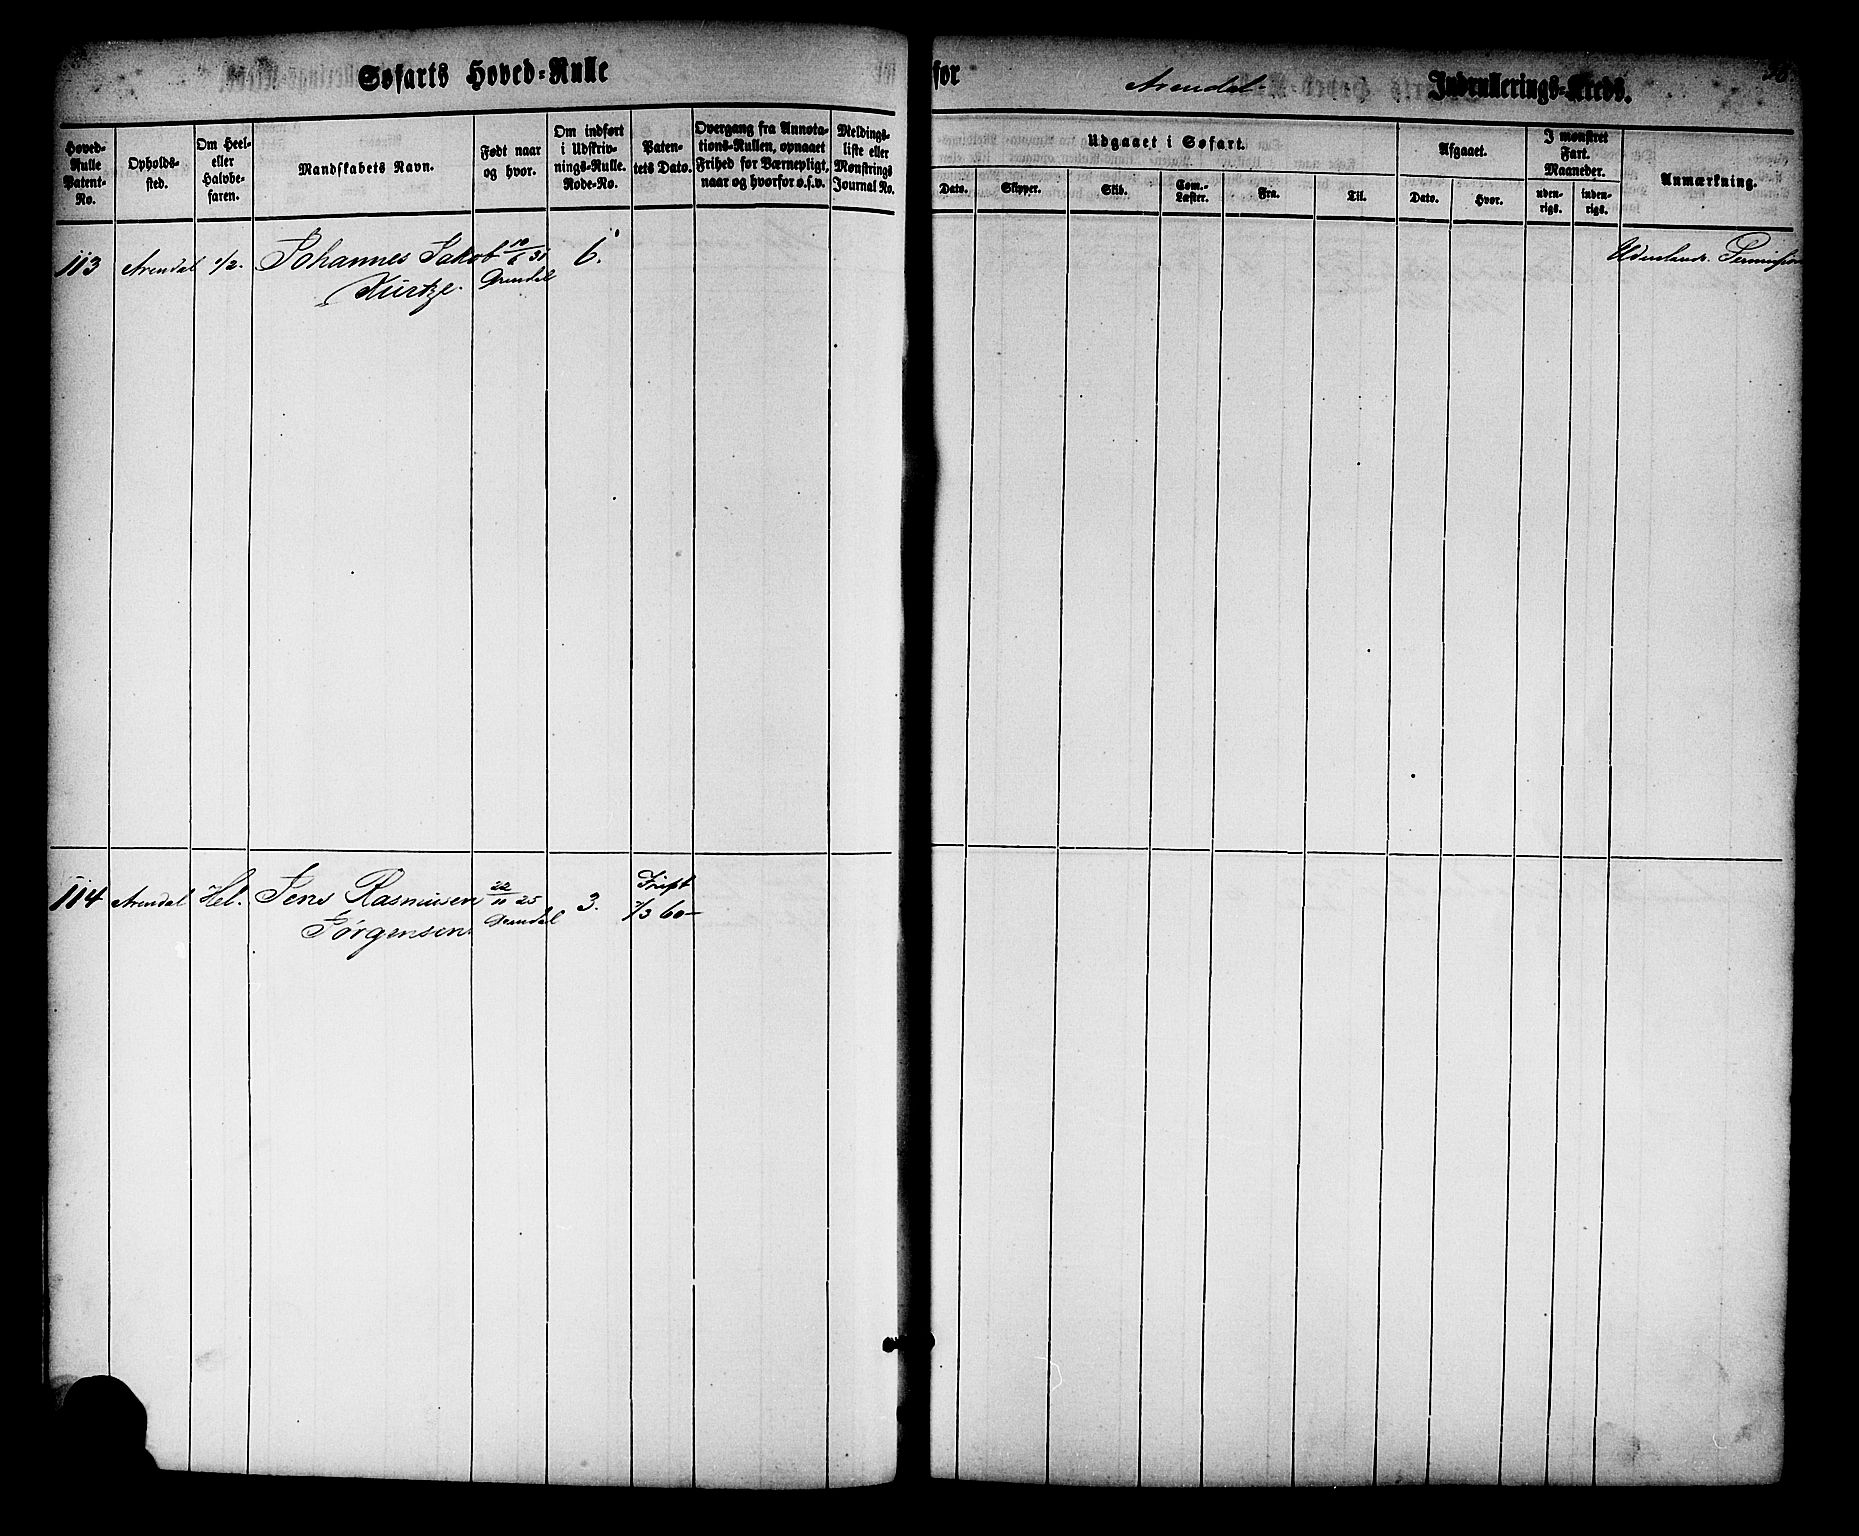 Søfarts Hoved-Rulle for Arendal Indrullerings-Kreds.
Hoved-Rulle Patent-No.
Opholds-sted.
Om Heel- eller Halvbe-faren.
Mandskabets Navn.
Født naar og hvor.
Om indført i Udskriv-nings-Rulle. Rode-No.
Paten-tets Dato.
Overgang fra Annota-tions-Rullen, opnaaet Frihed for Værnepligt, naar og hvorfor o.s.v.
Meldings-liste eller Mønstrings Journal No.
Udgaaet i Søfart.
Dato.
Skipper.
Skib.
Com.-Læster.
Fra.
Til.
Afgaaet.
Dato.
Hvor.
I mønstret Fart. Maaneder.
uden-rigs.
inden-rigs.
Anmærkning.
113 Arendal 1/2. Johannes Jakob 10/6 31 6. Udenlands. Permission
Kurtze. Arendal
114 Arendal Hel. Jens Rasmusen 22/10 25 3.
Jørgensen Arendal /3 60